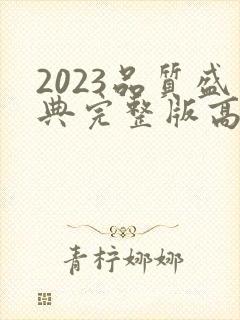 2023品質盛
典完整版高
青柠娜娜